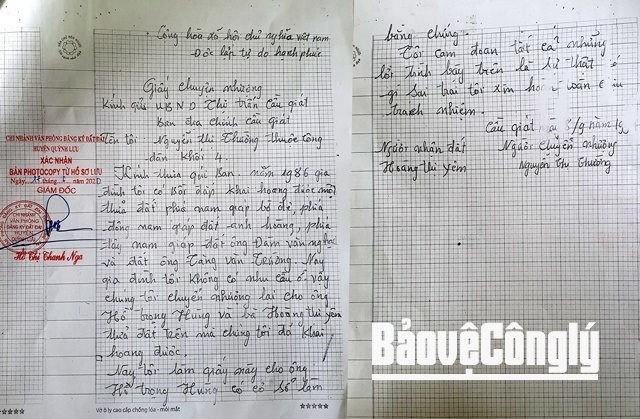 Cộng hòa xã hội chủ nghĩa việt nam
Độc lập tự do hạnh phúc
Giấy chuyển nhượng
Kính gửi UBND Thị trấn Cầu giát
Ban địa chính Cầu giát
Tên tôi Nguyễn thị Thường thuộc công
dân Khối 4.
Kính thưa quí Ban. năm 1986 gia
đình tôi có Bồi đắp khai hoang được một
thửa đất phía nam giáp bờ đê, phía
đông nam giáp đất anh hoàng, phía
tây nam giáp đất ông Đàm văn nghĩa
và đất ông Tăng văn Trường. Nay
gia đình tôi không có nhu cầu ở. vậy
chúng tôi chuyển nhượng lại cho ông
Hồ trọng Hùng và bà Hoàng thị yêm
thửa đất trên mà chúng tôi đã khai
hoang được.
Nay tôi làm giấy này cho ông
Hồ trọng Hùng có cơ sở làm
CHI NHÁNH VĂN PHÒNG ĐĂNG KÝ ĐẤT ĐAI
HUYỆN QUỲNH LƯU
XÁC NHẬN
BẢN PHOTOCOPY TỪ HỒ SƠ LƯU
Ngày, tháng năm 202
GIÁM ĐỐC
CHI NHÁNH
VĂN PHÒNG
ĐĂNG KÝ ĐẤT ĐAI
HUYỆN
Hồ Thị Thanh Nga
Vở ô ly cao cấp chống lóa - mỏi mắt
bằng chứng.
Tôi cam đoan tất cả những
lời trình bày trên là sự thật có
gì sai trái tôi xin
trách nhiệm.
Cầu giát 3/9 năm
Người nhận đất Người chuyển nhượng
Hoàng thị yêm Nguyễn Thị Thường
BảovệCônglý